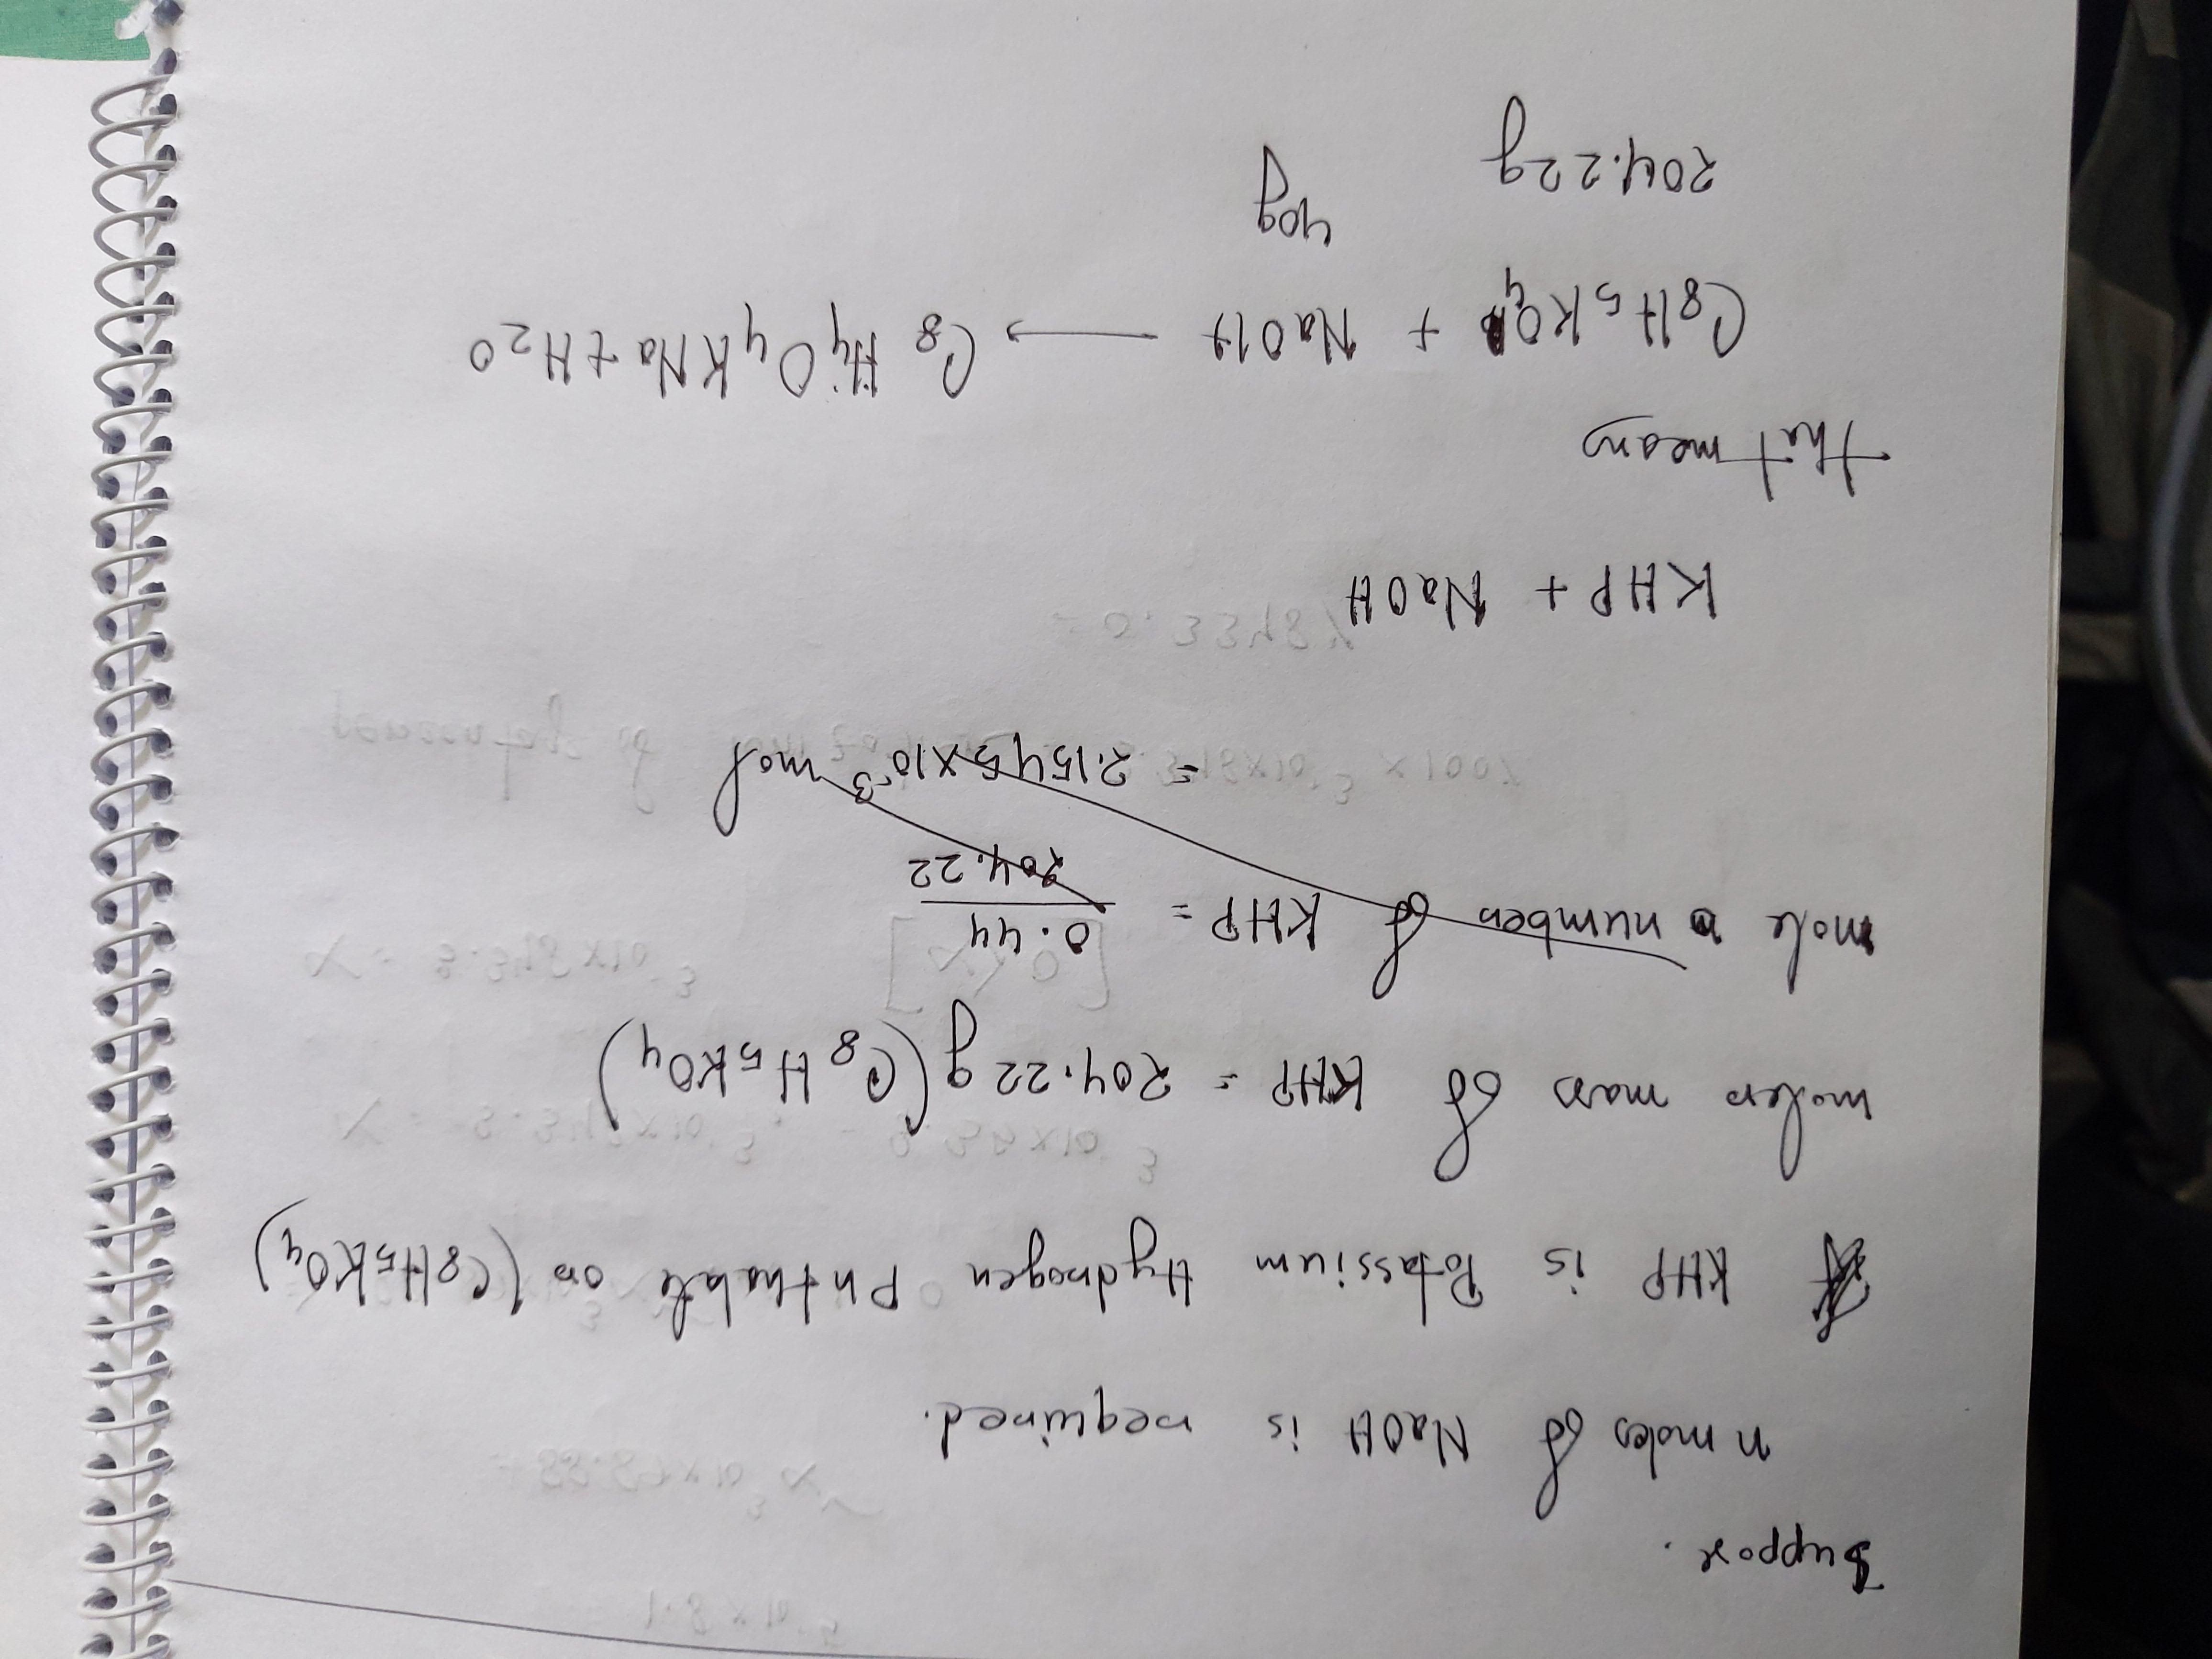 Suppose.
n moles of NaOH is required.
KHP is Potassium Hydrogen Phthalate or (C8H5KO4)
moler mass of KHP = 204.22g (C8H5KO4)
mole number of KHP = 0.44/204.22
= 2.1545×10⁻³ mol
KHP + NaOH
that means
C8H5KO4 + NaOH → C8H4O4KNa + H2O
204.22g 40g